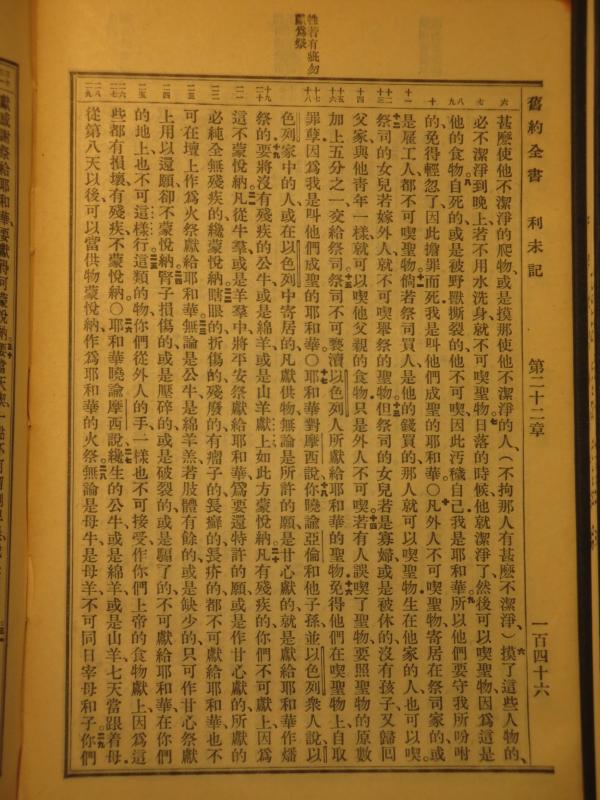 舊約全書　利未記　第二十二章　一百四十六
牲若有疵勿
獻爲祭
甚麼使他不潔淨的爬物、或是摸那使他不潔淨的人、（不拘那人有甚麼不潔淨、）摸了這些人物的、
必不潔淨到晚上、若不用水洗身、就不可喫聖物、日落的時候、他就潔淨了、然後可以喫聖物、因爲這是
他的食物、自死的、或是被野獸撕裂的、他不可喫、因此汚穢自己、我是耶和華。所以他們要守我所吩咐
的、免得輕忽了、因此擔罪而死、我是叫他們成聖的耶和華○凡外人不可喫聖物、寄居在祭司家的、或
是雇工人、都不可喫聖物、倘若祭司買人、是他的錢買的、那人就可以喫聖物、生在他家的人、也可以喫。
祭司的女兒、若嫁外人、就不可喫舉祭的聖物、但祭司的女兒、若是寡婦、或是被休的、沒有孩子、又歸回
父家、與他青年一樣、就可以喫他父親的食物、只是外人不可喫、若有人誤喫了聖物、要照聖物的原數
加上五分之一、交給祭司、祭司不可褻瀆以色列人所獻給耶和華的聖物、免得他們在喫聖物上、自取
罪孽、因爲我是叫他們成聖的耶和華○耶和華對摩西說、你曉諭亞倫和他子孫、並以色列衆人說、以
色列家中的人、或在以色列中寄居的、凡獻供物、無論是所許的願、是甘心獻的、就是獻給耶和華作燔
祭的、要將沒有殘疾的公牛、或是綿羊、或是山羊獻上、如此方蒙悅納、凡有殘疾的、你們不可獻上、因爲
這不蒙悅納、凡從牛羣、或是羊羣中、將平安祭獻給耶和華、爲要還特許的願、或是作甘心獻的、所獻的
必純全無殘疾的、纔蒙悅納、瞎眼的、折傷的、殘廢的、有瘤子的、長癬的、長疥的、都不可獻給耶和華、也不
可在壇上作爲火祭獻給耶和華、無論是公牛、是綿羊羔、若肢體有餘的、或是缺少的、只可作甘心祭獻
上、用以還願、卻不蒙悅納、腎子損傷的、或是壓碎的、或是破裂的、或是騸了的、不可獻給耶和華、在你們
的地上、也不可這樣行、這類的物、你們從外人的手、一樣也不可接受作你們上帝的食物獻上、因爲這
些都有損壞、有殘疾、不蒙悅納○耶和華曉諭摩西說、纔生的公牛、或是綿羊、或是山羊、七天當跟着母、
從第八天以後、可以當供物蒙悅納、作爲耶和華的火祭、無論是母牛、是母羊、不可同日宰母和子、你們
獻感謝祭給耶和華、要獻得可蒙悅納、要當天喫、一點不可留到